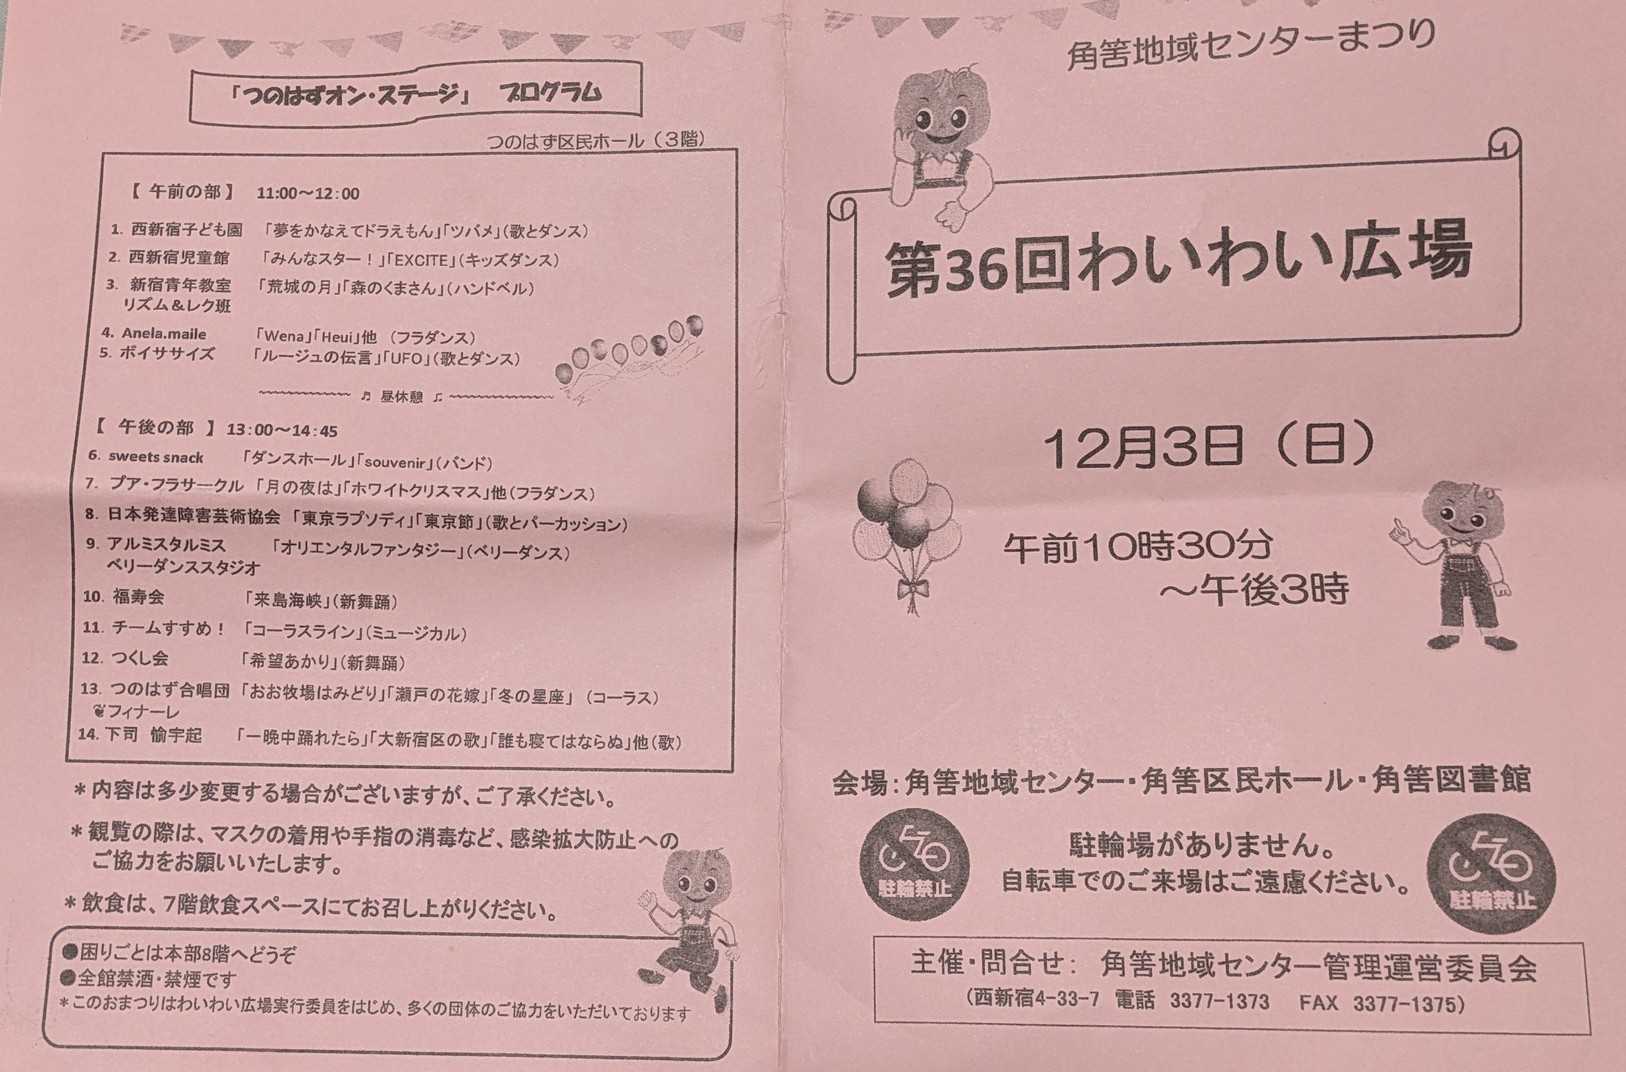 「つのはずオン・ステージ」 プログラム
つのはず区民ホール（3階）
【 午前の部 】 11:00～12:00
1. 西新宿子ども園 「夢をかなえてドラえもん」「ツバメ」（歌とダンス）
2. 西新宿児童館 「みんなスター！」「EXCITE」（キッズダンス）
3. 新宿青年教室 「荒城の月」「森のくまさん」（ハンドベル）
リズム＆レク班
4. Anela.maile 「Wena」「Heui」他 （フラダンス）
5. ボイササイズ 「ルージュの伝言」「UFO」（歌とダンス）
～～～～～～ ♬ 昼休憩 ♫ ～～～～～～
【 午後の部 】 13:00～14:45
6. sweets snack 「ダンスホール」「souvenir」（バンド）
7. プア・フラサークル 「月の夜は」「ホワイトクリスマス」他（フラダンス）
8. 日本発達障害芸術協会 「東京ラプソディ」「東京節」（歌とパーカッション）
9. アルミスタルミス 「オリエンタルファンタジー」（ベリーダンス）
ベリーダンススタジオ
10. 福寿会 「来島海峡」（新舞踊）
11. チームすすめ！ 「コーラスライン」（ミュージカル）
12. つくし会 「希望あかり」（新舞踊）
13. つのはず合唱団 「おお牧場はみどり」「瀬戸の花嫁」「冬の星座」 （コーラス）
❦フィナーレ
14. 下司 愉宇起 「一晩中踊れたら」「大新宿区の歌」「誰も寝てはならぬ」他（歌）
＊内容は多少変更する場合がございますが、ご了承ください。
＊観覧の際は、マスクの着用や手指の消毒など、感染拡大防止への
ご協力をお願いいたします。
＊飲食は、7階飲食スペースにてお召し上がりください。
●困りごとは本部8階へどうぞ
●全館禁酒・禁煙です
＊このおまつりはわいわい広場実行委員をはじめ、多くの団体のご協力をいただいております
角筈地域センターまつり
第36回わいわい広場
12月3日（日）
午前10時30分
～午後3時
会場：角筈地域センター・角筈区民ホール・角筈図書館
駐輪禁止
駐輪場がありません。
自転車でのご来場はご遠慮ください。
駐輪禁止
主催・問合せ： 角筈地域センター管理運営委員会
（西新宿4-33-7 電話 3377-1373 FAX 3377-1375）